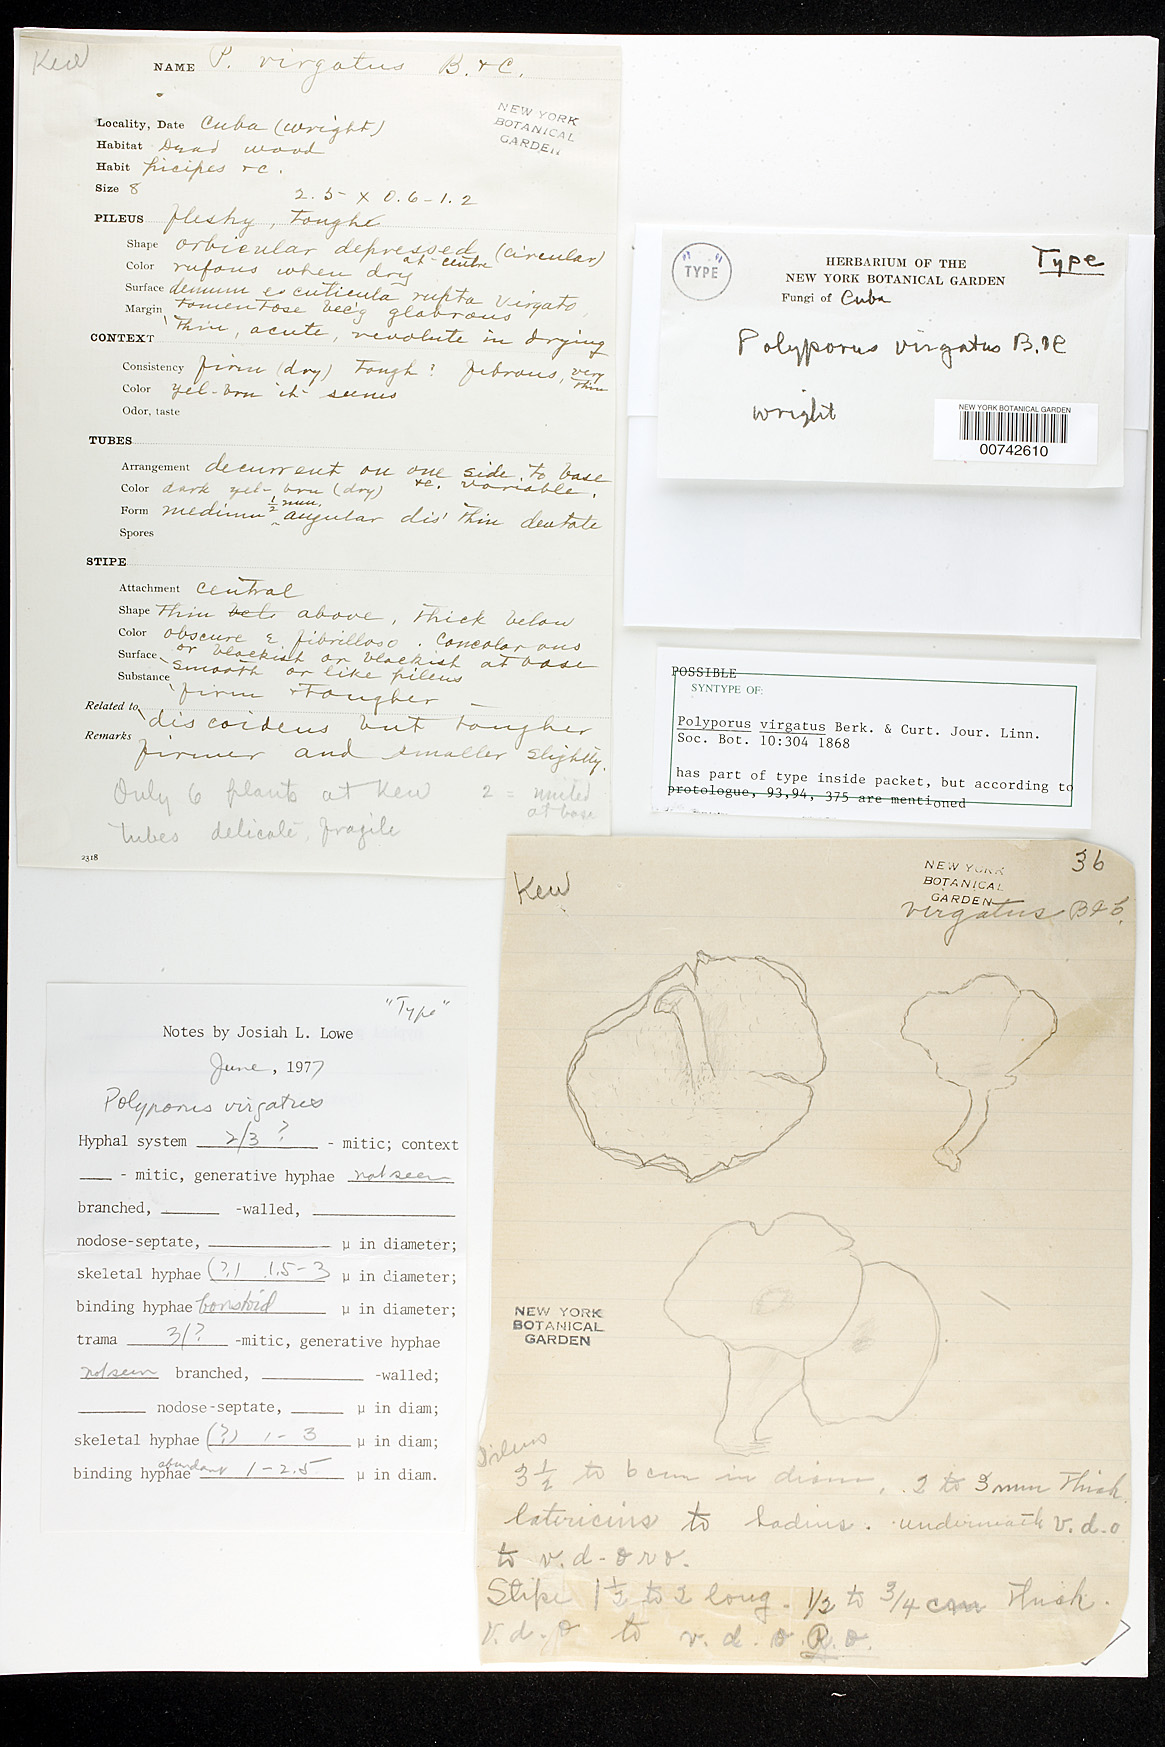 Kew
NAME P. virgatus B. & C.
NEW YORK
BOTANICAL
GARDEN
Locality, Date Cuba (Wright)
Habitat Dead wood
Habit picipes &c.
Size 8 2.5 x 0.6-1.2
PILEUS fleshy, tough
Shape orbicular depressed (circular)
at centre
Color rufous when dry
Surface demum e cuticula rupta virgato,
tomentose bec'g glabrous
Margin thin, acute, revolute in drying
CONTEXT
Consistency firm (dry) tough? fibrous, very thin
Color yel-brn it seems
Odor, taste
TUBES
Arrangement decurrent on one side to base
&c. variable.
Color dark yel-brn (dry)
Form medium 1/2 mm. angular dis' thin dentate
Spores
STIPE
Attachment central
Shape thin above, thick below
Color obscure & fibrilloso. Concolorous
or blackish or blackish at base
Surface smooth or like pileus
Substance firm & tougher
Related to discoideus but tougher
Remarks firmer and smaller slightly.
Only 6 plants at Kew 2 = united
at base
tubes delicate, fragile
2318
"TYPE"
HERBARIUM OF THE
NEW YORK BOTANICAL GARDEN
Type
Fungi of Cuba
Polyporus virgatus B. & C
Wright
NEW YORK BOTANICAL GARDEN
00742610
POSSIBLE
SYNTYPE OF:
Polyporus virgatus Berk. & Curt. Jour. Linn.
Soc. Bot. 10:304 1868
has part of type inside packet, but according to
protologue, 93,94, 375 are mentioned
Kew
36
NEW YORK
BOTANICAL
GARDEN
virgatus B & C.
NEW YORK
BOTANICAL
GARDEN
Pileus
3 1/2 to 6 cm in diam, 2 to 3 mm thick.
latericius to badius. underneath v.d-o
to v.d-o r o.
Stipe 1 1/2 to 2 long. 1/2 to 3/4 cm thick.
v.d-o to v.d.o.R.o.
"Type"
Notes by Josiah L. Lowe
June, 1977
Polyporus virgatus
Hyphal system 2/3 ? - mitic; context
- mitic, generative hyphae not seen
branched, -walled,
nodose-septate, µ in diameter;
skeletal hyphae (?) 1.5-3 µ in diameter;
binding hyphae bovistoid µ in diameter;
trama 3/? -mitic, generative hyphae
not seen branched, -walled;
nodose-septate, µ in diam;
skeletal hyphae (?) 1-3 µ in diam;
binding hyphae abundant 1-2.5 µ in diam.